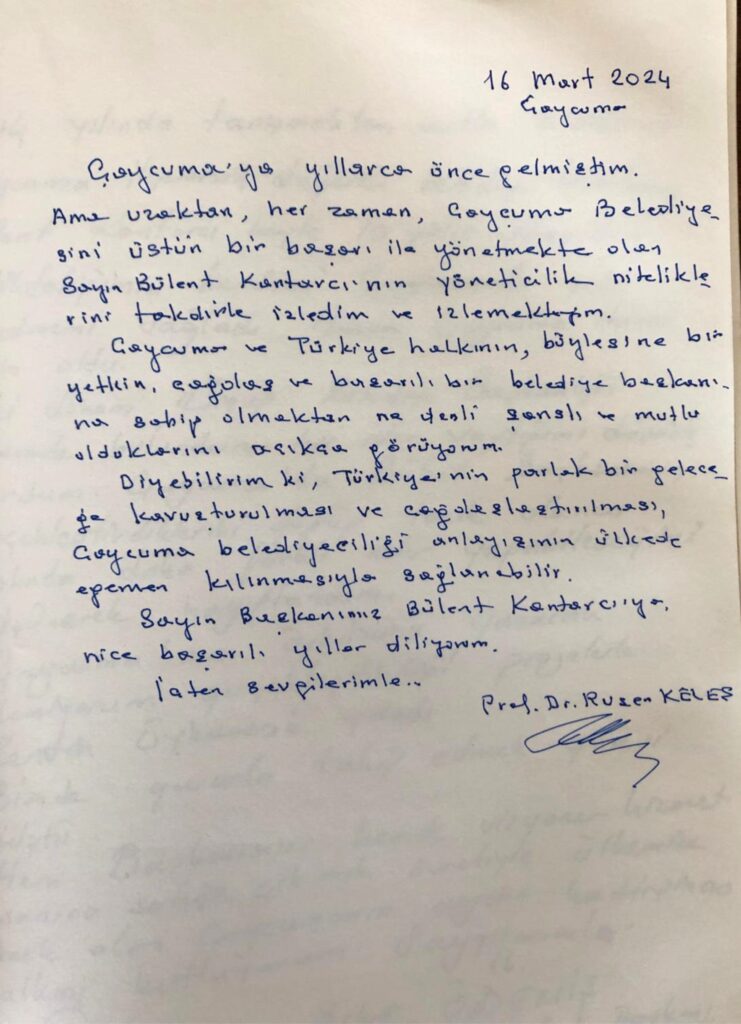 16 Mart 2024
Çaycuma
Çaycuma'ya yıllarca önce gelmiştim.
Ama uzaktan, her zaman, Çaycuma Belediye
sini üstün bir başarı ile yönetmekte olan
Sayın Bülent Kantarcı'nın yöneticilik nitelikle
rini takdirle izledim ve izlemekteyim.
Çaycuma ve Türkiye halkının, böylesine bir
yetkin, çağdaş ve başarılı bir belediye başkanı-
na sahip olmaktan ne denli şanslı ve mutlu
olduklarını açıkça görüyorum.
Diyebilirim ki, Türkiye'nin parlak bir gelece
ğe kavuşturulması ve çağdaşlaştırılması,
Çaycuma belediyeciliği anlayışının ülkede
egemen kılınmasıyla sağlanabilir.
Sayın Başkanımız Bülent Kantarcı'ya,
nice başarılı yıllar diliyorum.
İçten sevgilerimle..
Prof. Dr. Ruşen KELEŞ